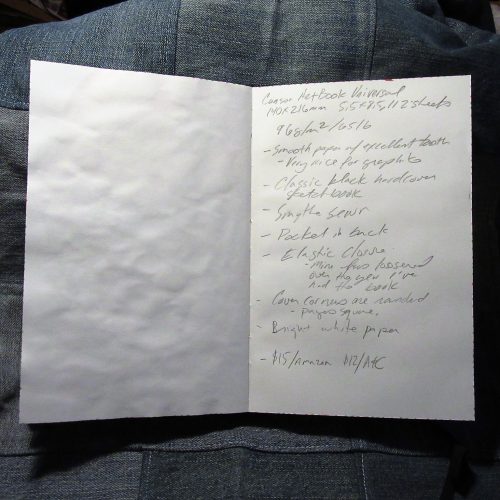 Canson ArtBook Universal
140x216mm 5.5x8.5, 112 sheets
96g/m2/65lb
- Smooth paper w/ excellent tooth
- Very nice for graphite
- Classic black hardcover
sketchbook
- Smythe sewn
- Pocket in back
- Elastic Closure
- Mine has loosened
over the year I've
had the book
- Cover corners are rounded
- pages square.
- Bright white paper
- $15/Amazon $12/AC